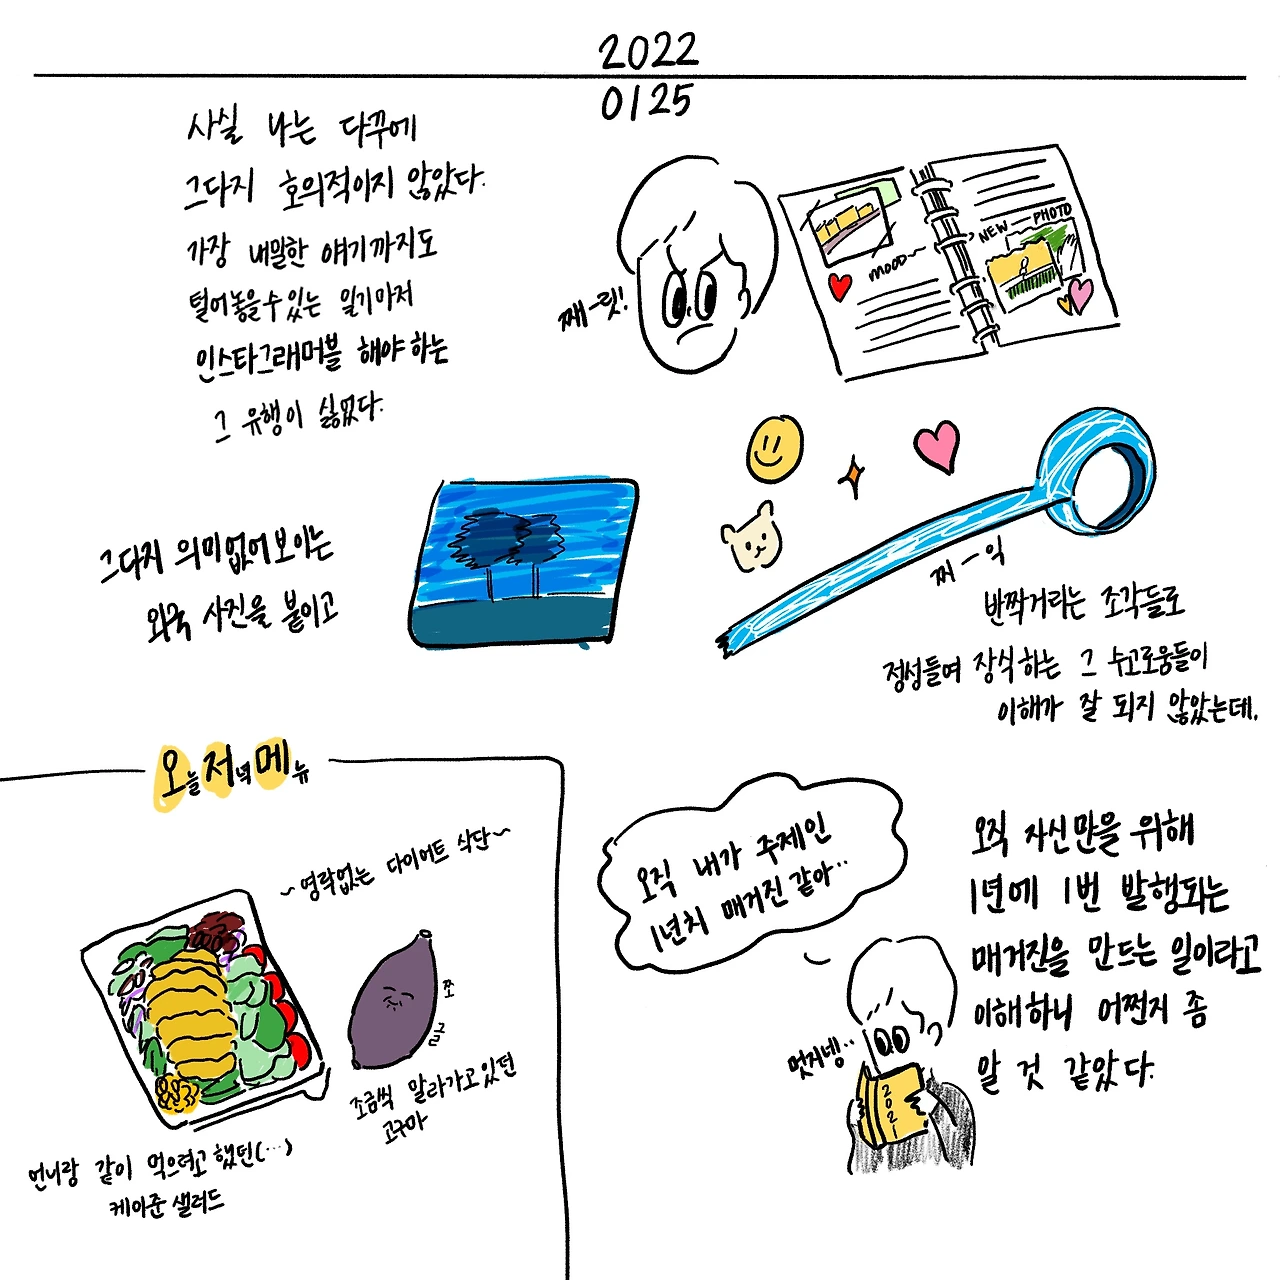 2022
01 25
사실 나는 다꾸에
그다지 호의적이지 않았다.
가장 내밀한 얘기까지도
털어놓을 수 있는 일기마저
인스타그래머블 해야 하는
그 유행이 싫었다.
째-릿!
mOOD~
NEW PHOTO
그다지 의미없어 보이는
외국 사진을 붙이고
찌-익
반짝거리는 조각들로
정성들여 장식하는 그 수고로움들이
이해가 잘 되지 않았는데,
오늘 저녁 메뉴
~영락없는 다이어트 식단~
쪼
글
조금씩 말라가고있던
고구마
언니랑 같이 먹으려고 했던(…)
케이준 샐러드
오직 내가 주제인
1년치 매거진 같아..
멋지네..
2021
오직 자신만을 위해
1년에 1번 발행되는
매거진을 만드는 일이라고
이해하니 어쩐지 좀
알 것 같았다.